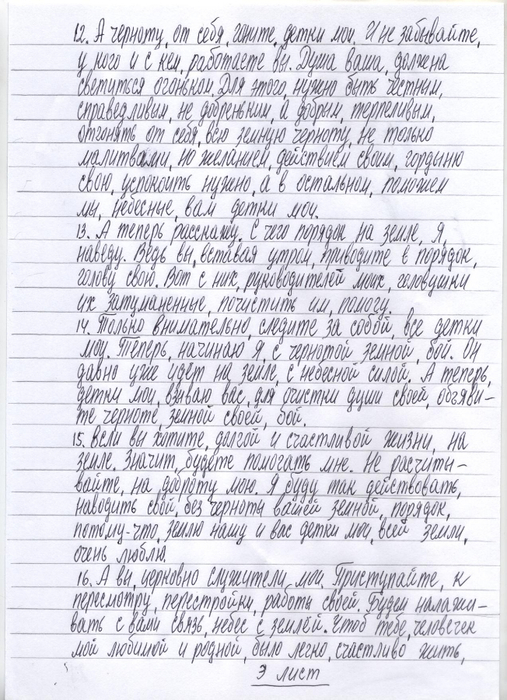 12. А черноту, от себя, гоните, детки мои. И не забывайте,
у кого и с кем, работаете вы. Душа ваша, должна
светиться огоньком. Для этого, нужно быть честным,
справедливым, не добреньким, а добрым, терпеливым,
отгонять от себя, всю земную черноту, не только
малитвами, но желанием, действием своим, гордыню
свою, успокоить нужно, а в остальном, поможем
мы, небесные, вам детки мои.
13. А теперь расскажу. С чего порядок на земле, я,
наведу. Ведь вы, вставая утром, приводите в порядок,
голову свою. Вот с них, руководителей моих, головушки
их затуманенные, почистить им, помогу.
14. Только внимательно, следите за собой, все детки
мои. Теперь, начинаю я, с чернотой земной, бой. Он
давно уже идет на земле, с небесной силой. А теперь,
детки мои, взываю вас, для очистки души своей, объяви-
те черноте, земной своей, бой.
15. Если вы хотите, долгой и счастливой жизни, на
земле. Значит, будете помогать мне. Не расчиты-
вайте, на доброту мою. Я буду так действовать,
наводить свой, без черноты вашей земной, порядок,
потому-что, землю нашу и вас детки мои, всей земли,
очень люблю.
16. А вы, церковно служители, мои. Приступайте, к
пересмотру, перестройки, работы своей. Будем налажи-
вать с вами связь, небес с землёй. Чтоб тебе, человечек
мой любимой и родной, было легко, счастливо жить,
3 лист